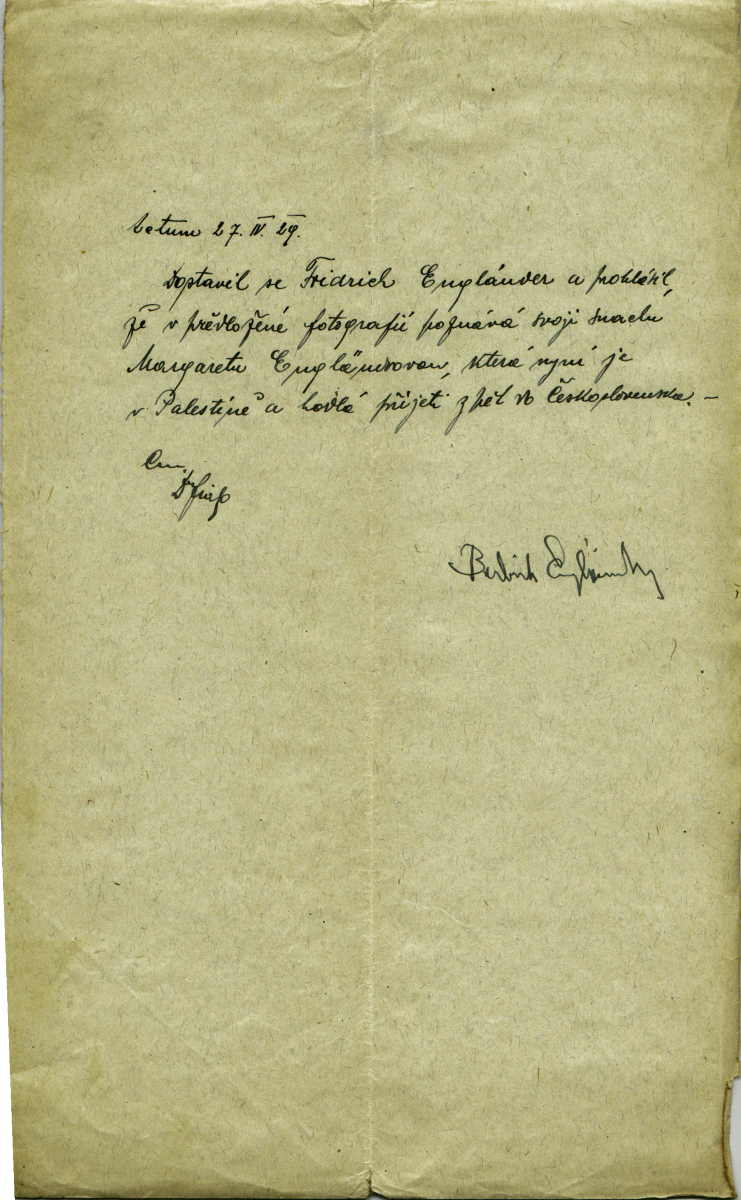 Datum 27. IV. 29.
Dostavil se Fridrich Engländer a prohlásil,
že v předložené fotografií poznává svoji snachu
Margaretu Engländrovou, která nyní je
v Palestýně a hodlá přijeti zpět do Československa. –
Engländer